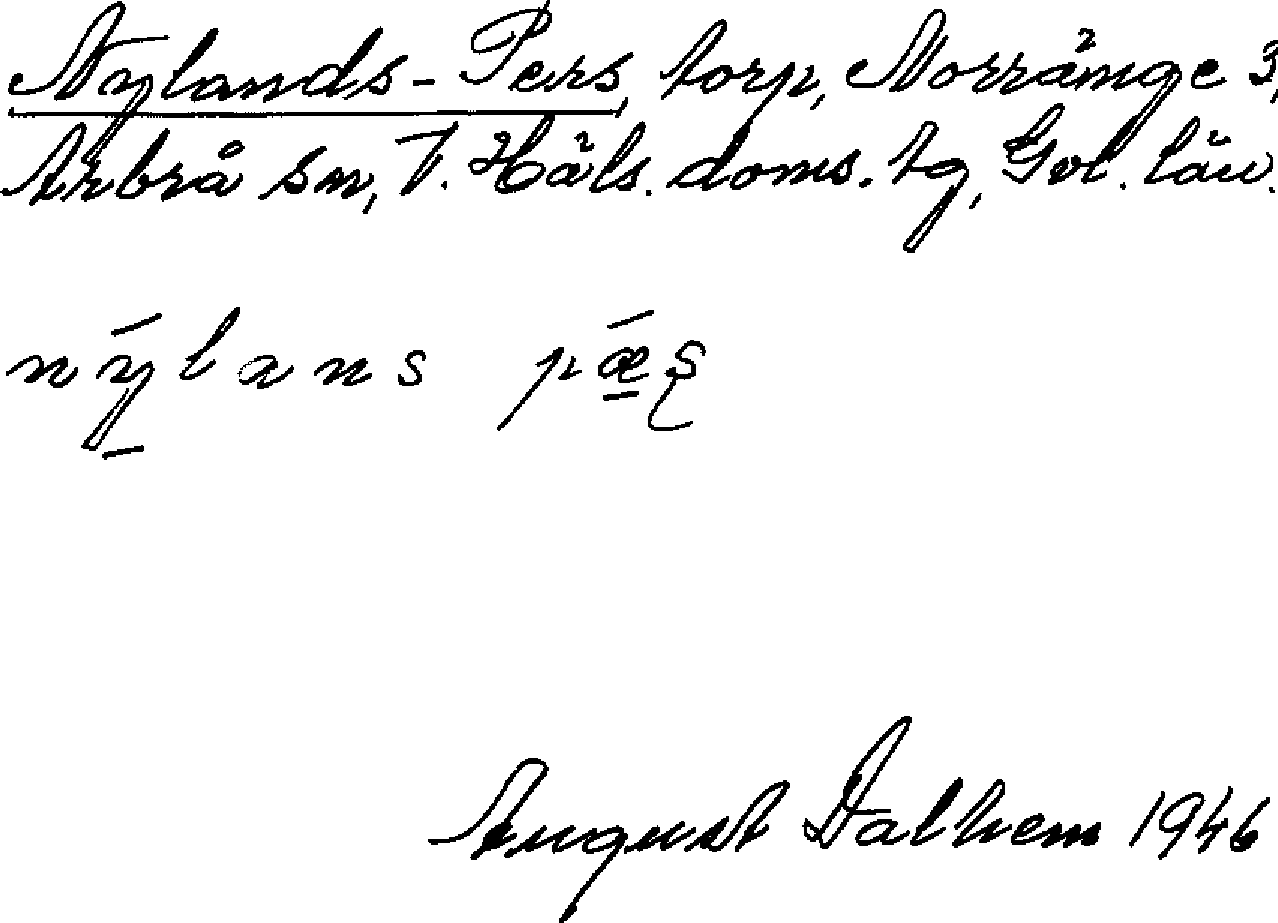 Nylands-Pers, torp, Norränge 3,
Arbrå sn, V. Häls. doms. tg, Gvl. län.
ný̱lans pǽ̱ʂ
August Dalhem 1946